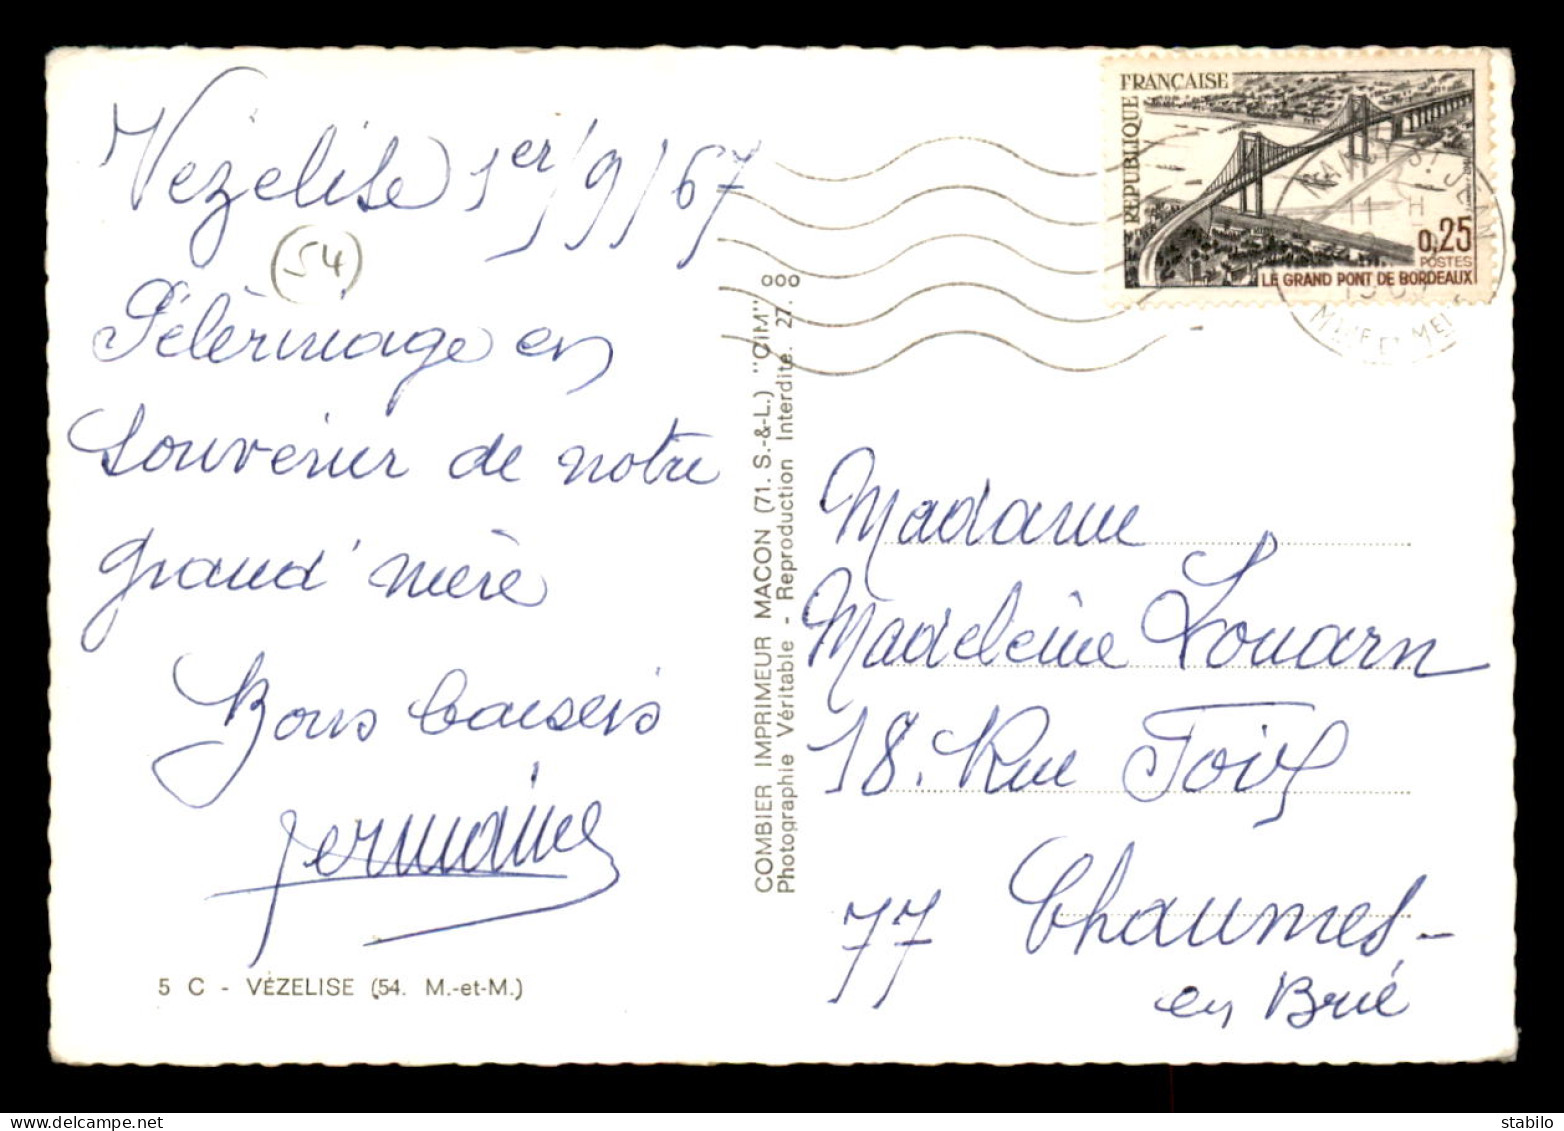 Vézelise 1er/9/67
(54)
Pélèrinage en
souvenir de notre
grand'mère
Bons baisers
Germaine
5 C - VÉZELISE (54. M.-et-M.)
COMBIER IMPRIMEUR MACON (71. S.-&-L.) "CIM"
Photographie Véritable - Reproduction Interdite. 27. 000
RÉPUBLIQUE FRANÇAISE
0,25
POSTES
LE GRAND PONT DE BORDEAUX
NANCY St JEAN
11 H
Madame
Madeleine Louarn
18. Rue Foix
77 Chaumes-
en Brie
stabilo